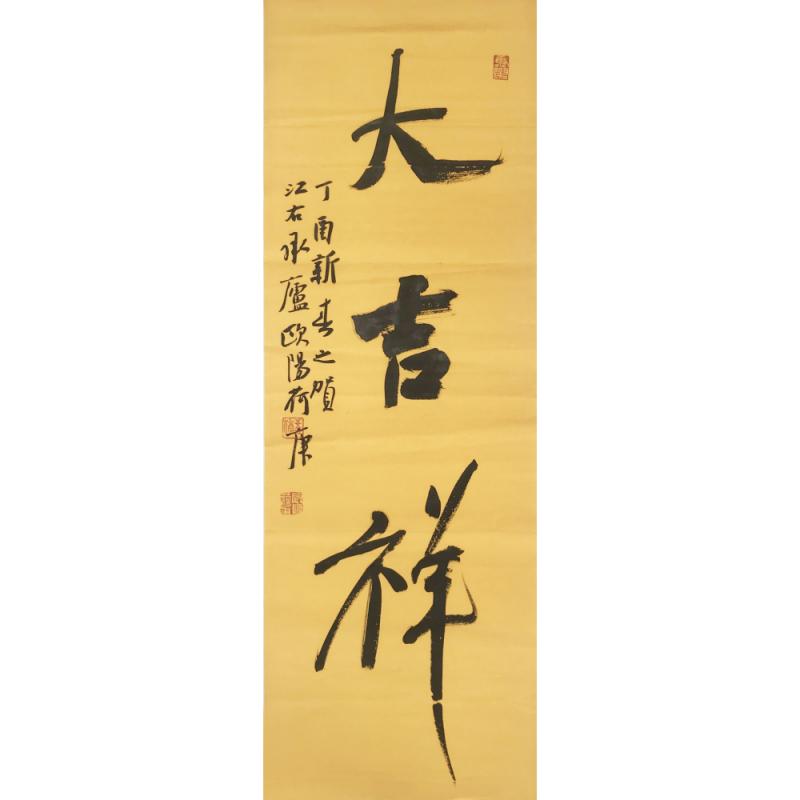 大吉祥
丁酉新春之賀
江右承廬歐陽荷庚